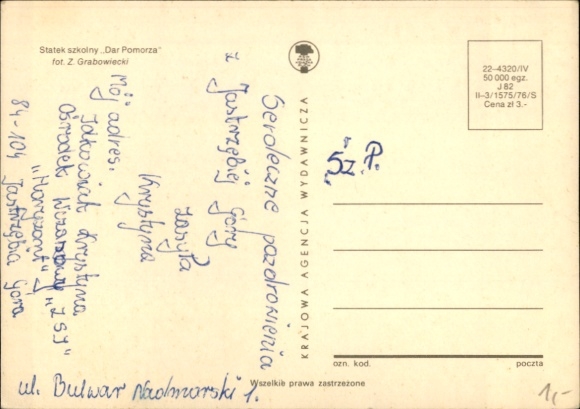 Statek szkolny „Dar Pomorza"
fot. Z. Grabowiecki
Serdeczne pozdrowienia
z Jastrzębiej Góry
zasyła
Krystyna
Mój adres:
Krystyna
Ośrodek Wczasowy „ZSJ"
„Horyzont"
84-104 Jastrzębia Góra
ul. Bulwar Nadmorski 1.
KRAJOWA AGENCJA WYDAWNICZA
22-4320/IV
50 000 egz.
J 82
II-3/1575/76/S
Cena zł 3.-
"Sz. P.
ozn. kod.
poczta
Wszelkie prawa zastrzeżone
1,-